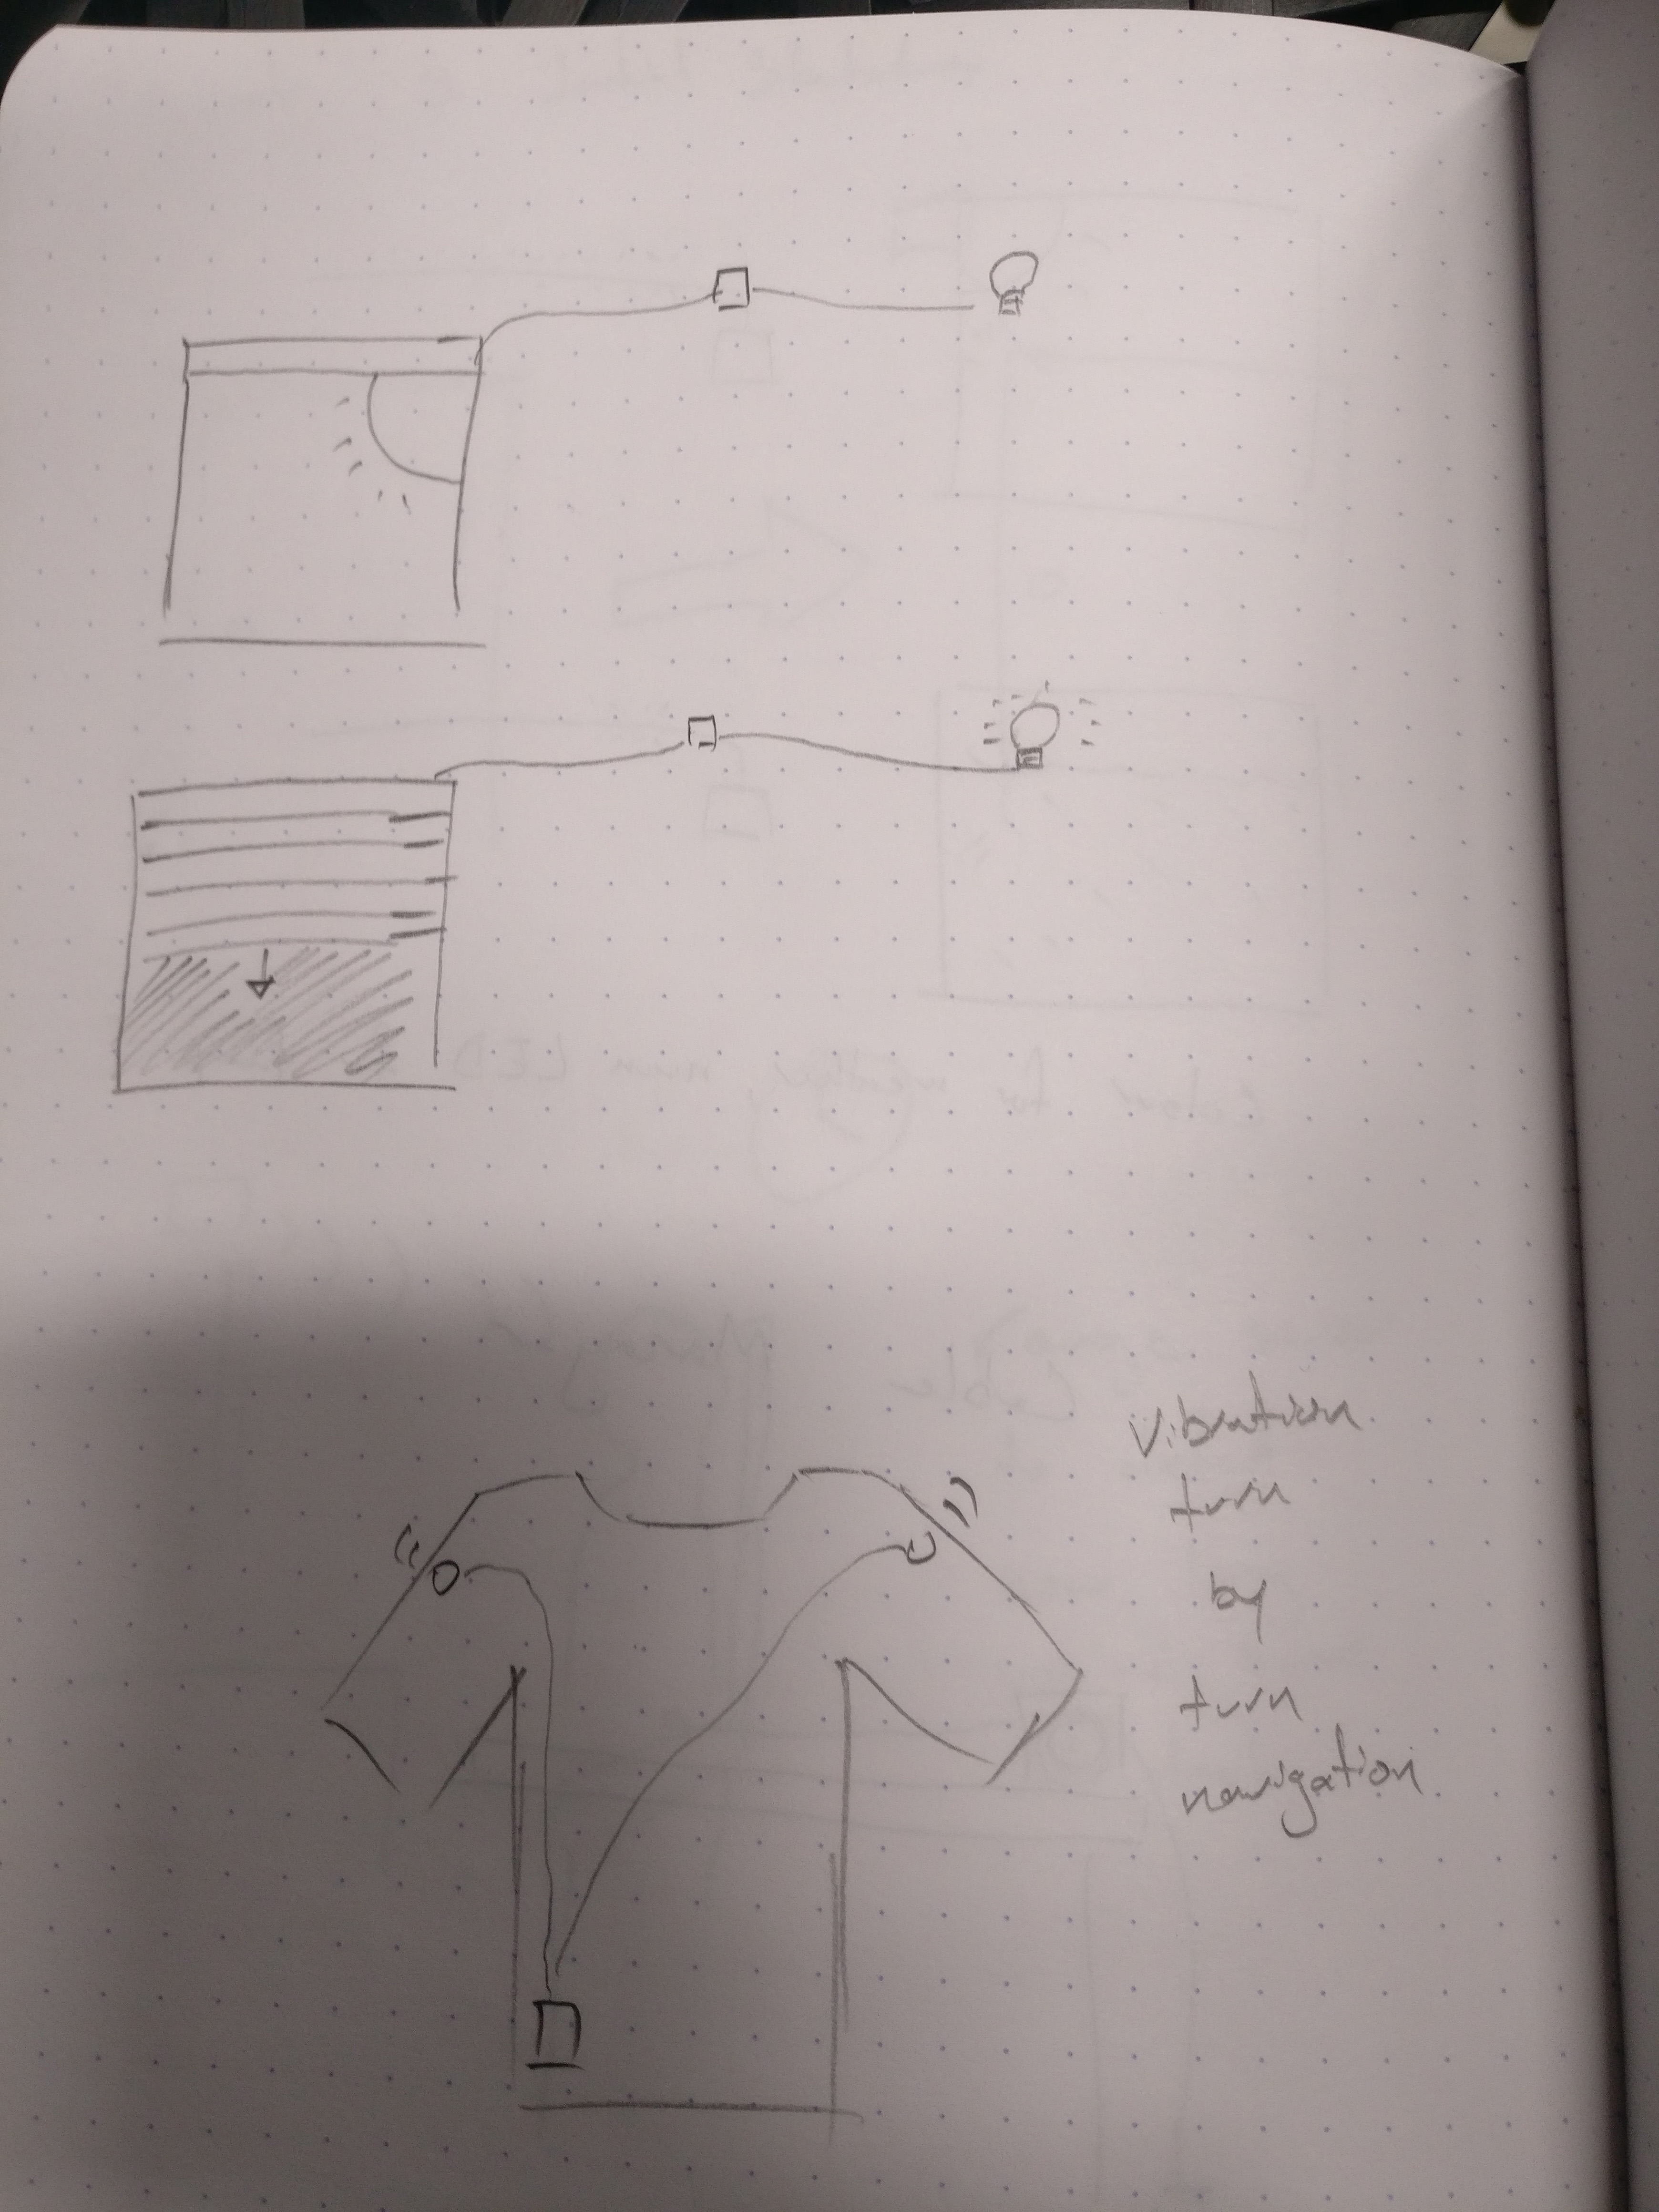 Vibration
turn
by
turn
navigation